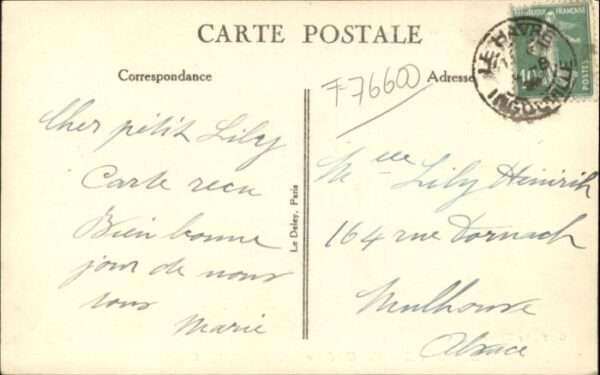 CARTE POSTALE
Correspondance
Adresse
F-76600
LE HAVRE
INGOUVILLE
REPUBLIQUE FRANÇAISE
10
POSTES
Cher petit Lily
Carte recu
Bien bonne
jour de nous
tous
Marie
Le Deley, Paris
Melle Lily Heinrich
164 rue Dornach
Mulhouse
Alsace